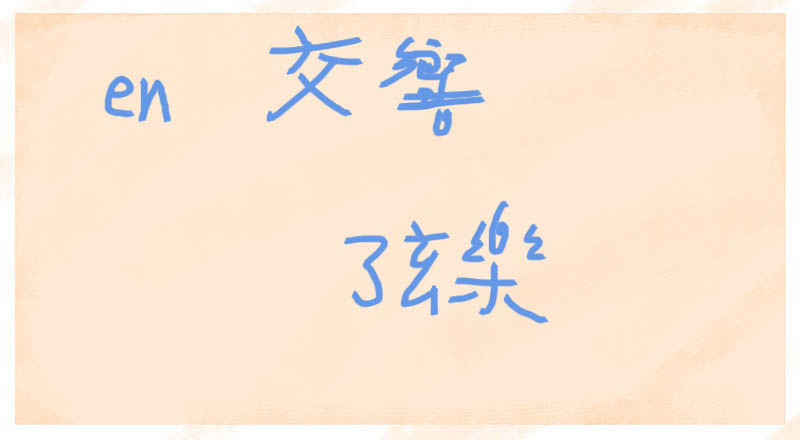 en 交響
弦樂